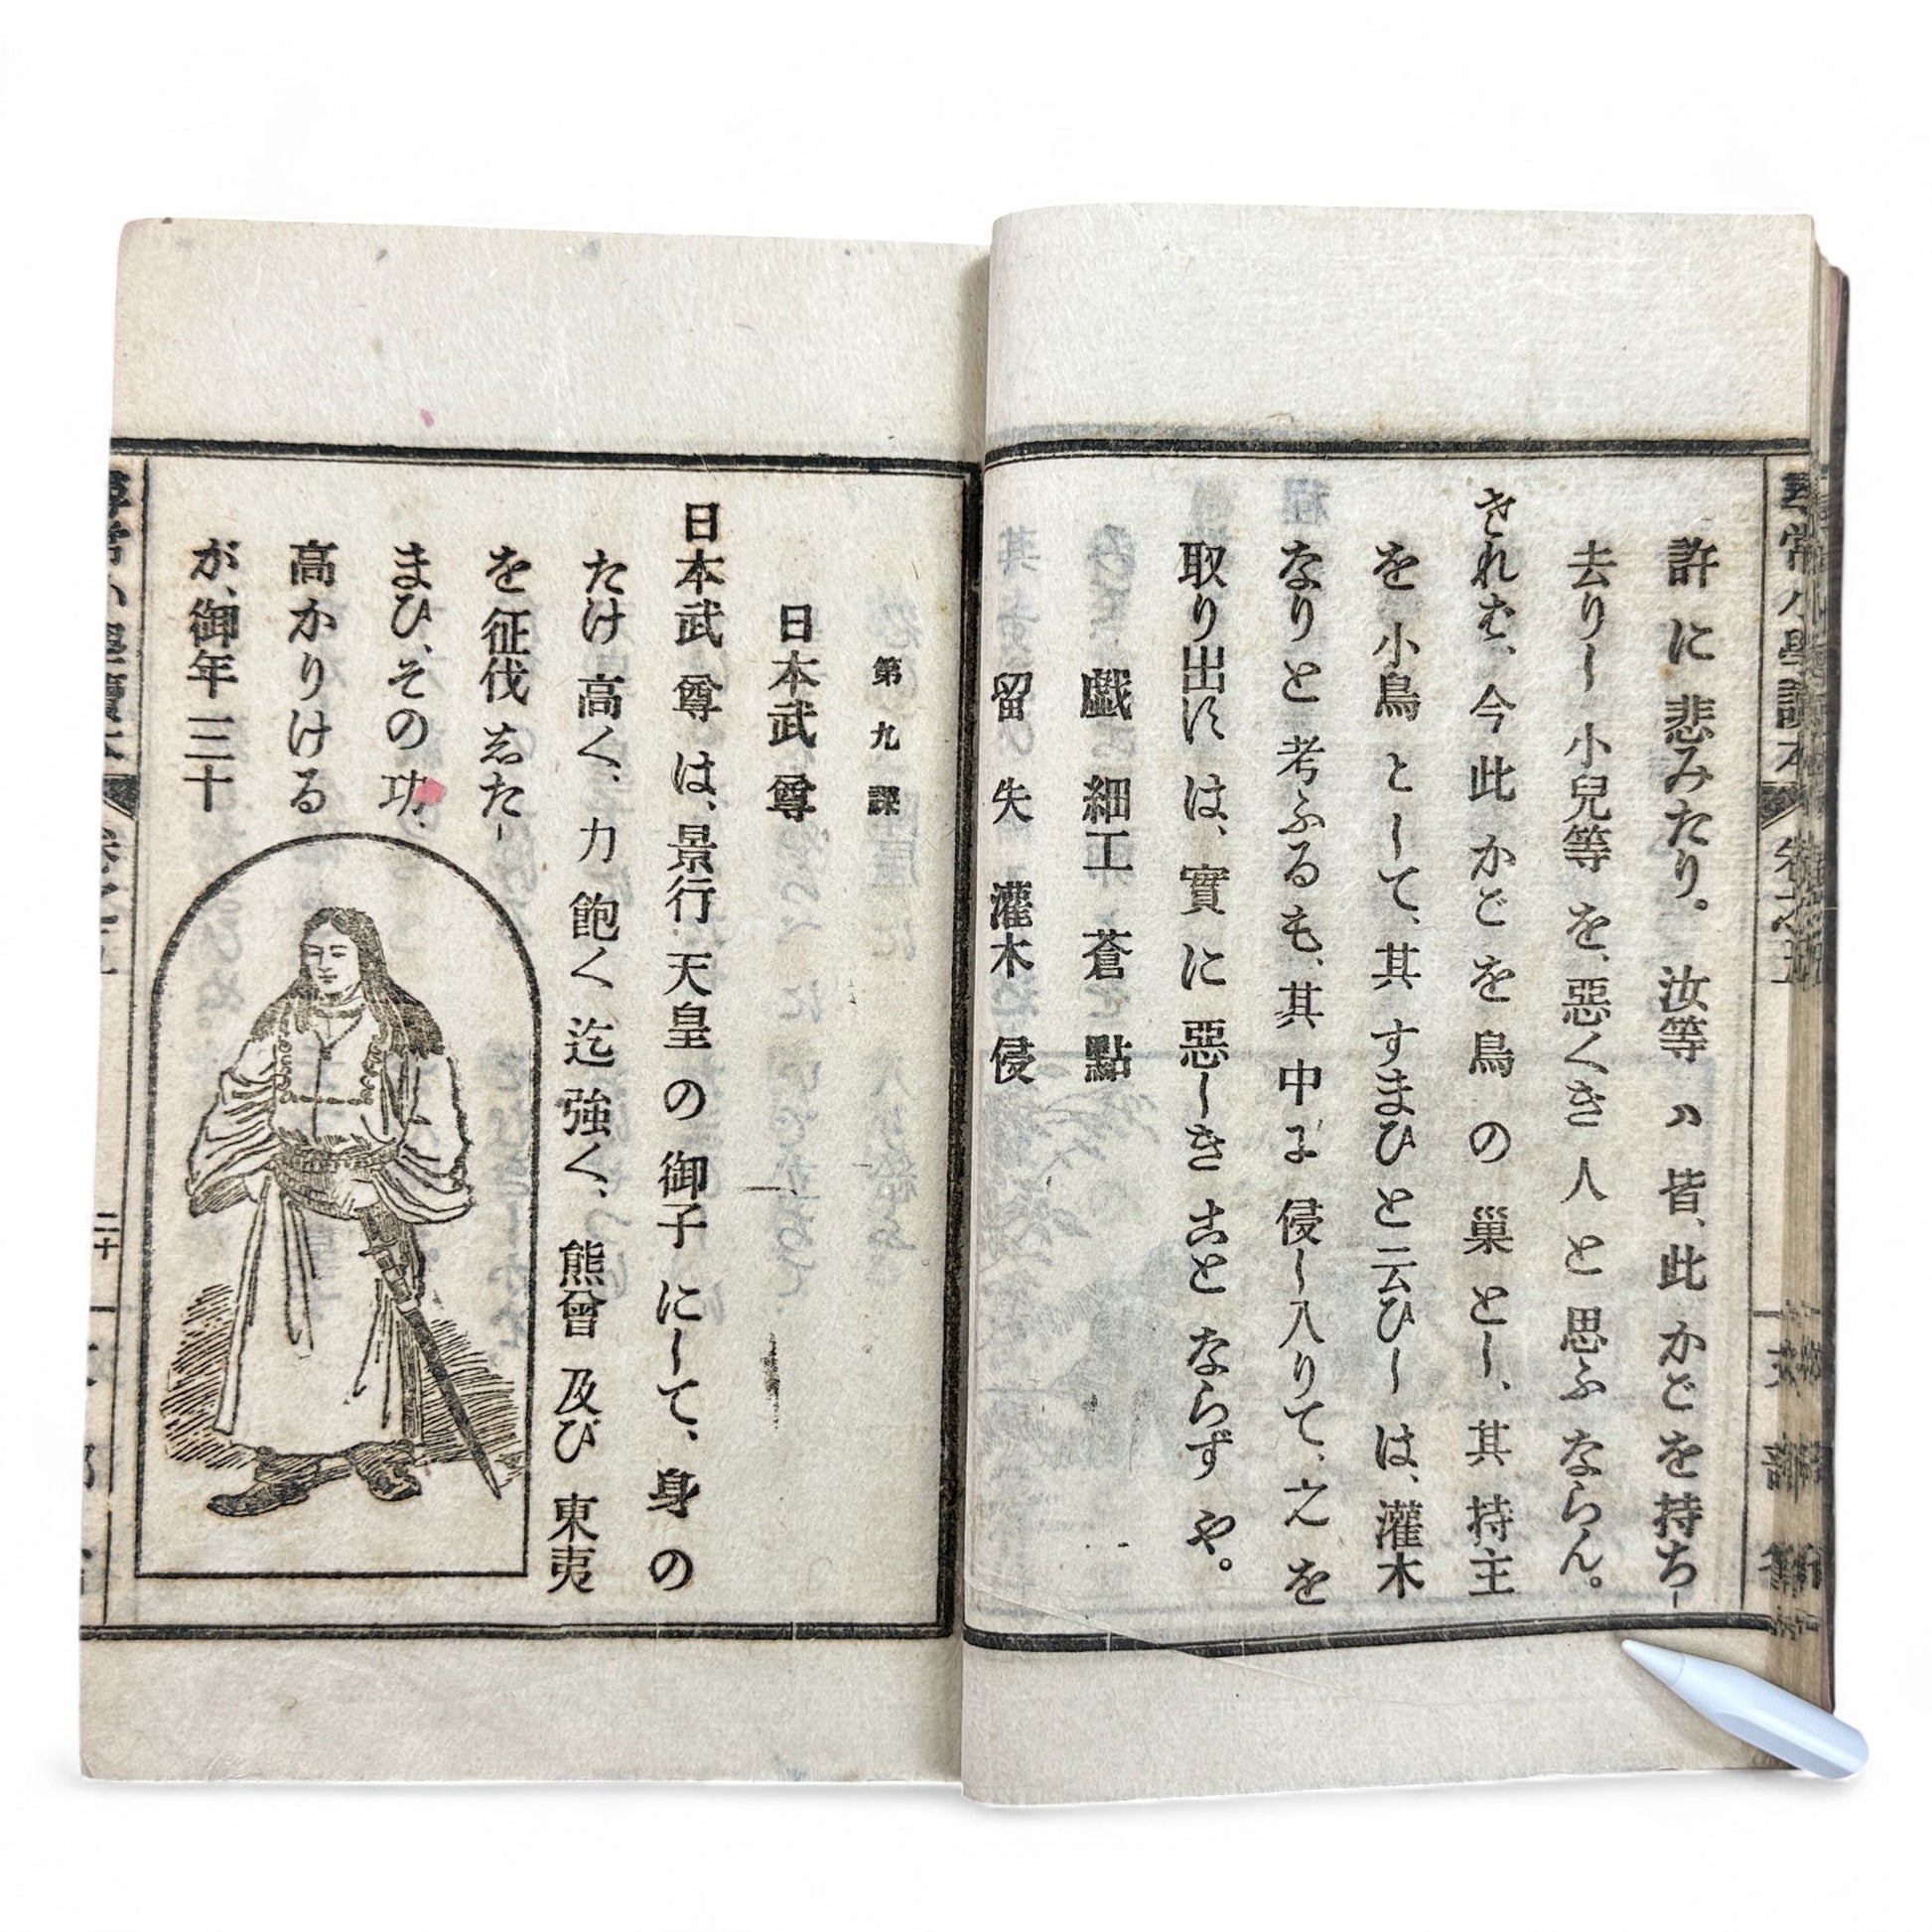 許に悲みたり。汝等ハ皆、此かごを持ち
去りし小兒等を、惡くき人と思ふならん。
されむ、今此かごを鳥の巢とし、其持主
を小鳥として、其すまひと云ひしは、灌木
なりと考ふるも、其中よ侵し入りて、之を
取り出すは、實に惡しきことならずや。
戲 細工 蒼 點
留 失 灌木 侵
第九課
日本武尊
日本武尊は、景行天皇の御子にして、身の
たけ高く、力飽く迄強く、熊曾及び東夷
を征伐した
まひ、その功
高かりける
が、御年三十
二十